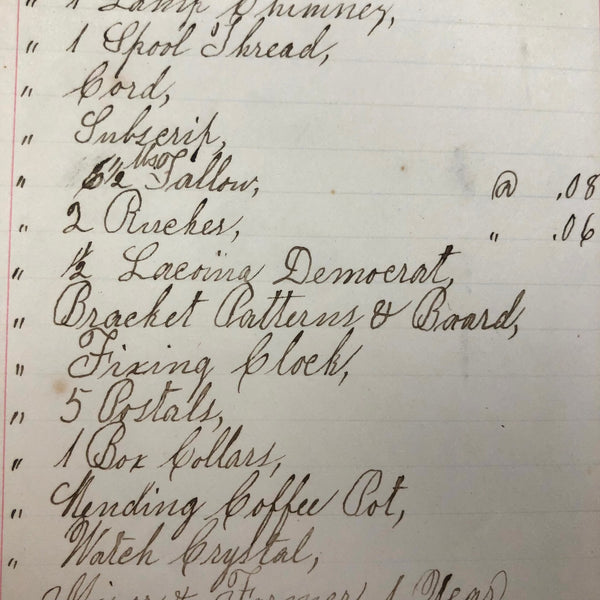 " 1 Lamp Chimney,
" 1 Spool Thread,
" Cord,
" Subscrip,
" 6½ lbs Tallow, @ .08
" 2 Ruches, " .06
" ½ Laconia Democrat,
" Bracket Patterns & Board,
" Fixing Clock,
" 5 Postals,
" 1 Box Collars,
" Mending Coffee Pot,
" Watch Crystal,
Mirror & Farmer 1 Year